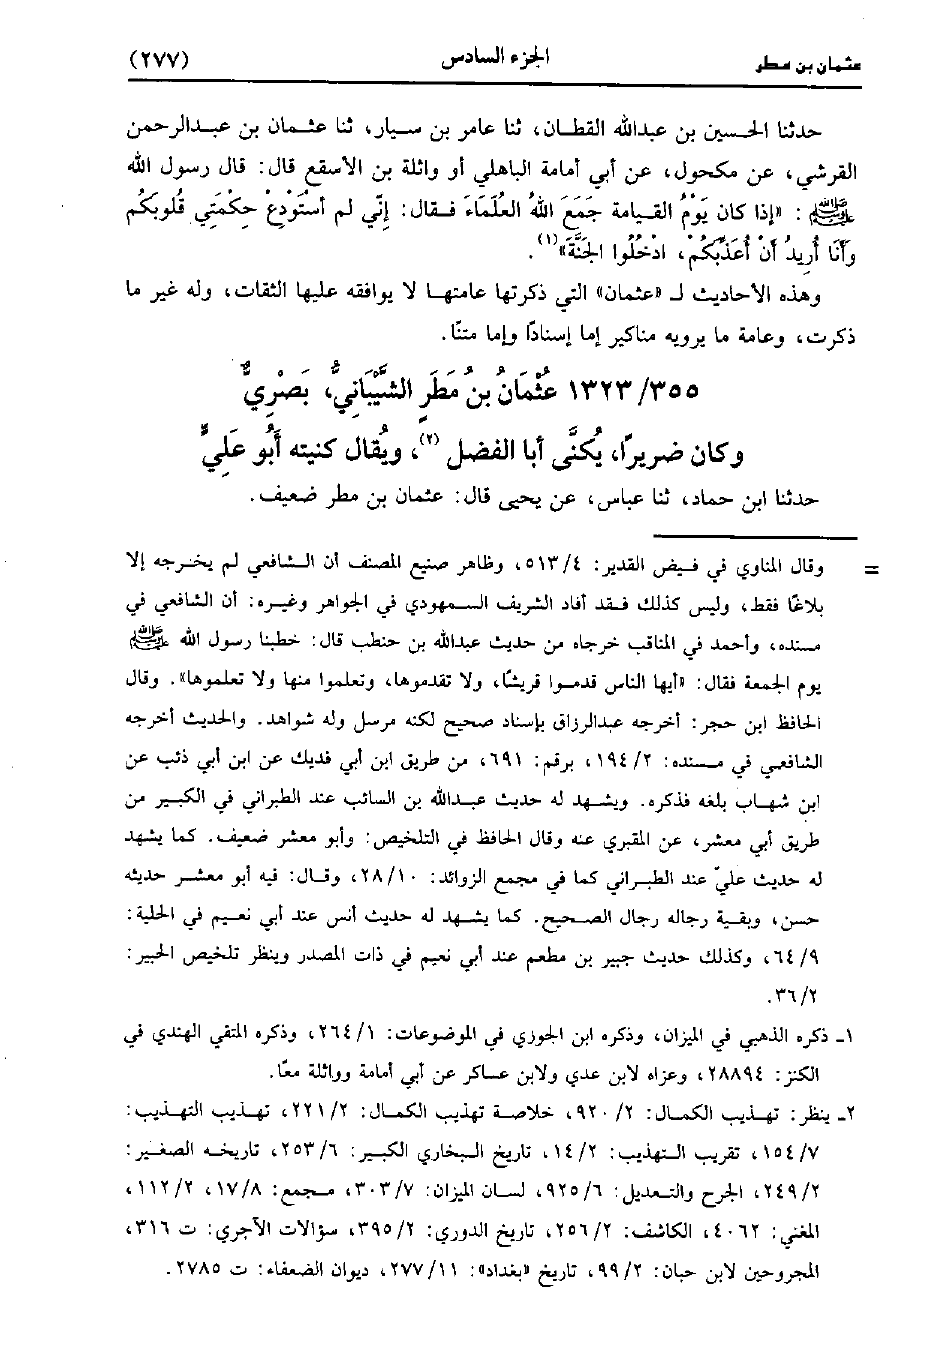 عثمان بن مطر الجزء السادس (٢٧٧)
حدثنا الحسين بن عبدالله القطان، ثنا عامر بن سيار، ثنا عثمان بن عبدالرحمن
القرشي، عن مكحول، عن أبي أمامة الباهلي أو واثلة بن الأسقع قال: قال رسول الله
ﷺ: «إذا كان يَوْمُ القيامة جَمَعَ اللهُ العلَمَاءَ فقال: إنِّي لم أسْتَودِعْ حِكْمَتِي قُلوبَكُم
وأَنَا أُرِيدُ أَنْ أُعَذِّبَكُمْ، ادْخُلُوا الجَنَّةَ»(١).
وهذه الأحاديث لـ «عثمان» التي ذكرتها عامتها لا يوافقه عليها الثقات، وله غير ما
ذكرت، وعامة ما يرويه مناكير إما إسنادًا وإما متنًا.
١٣٢٣/٣٥٥ عُثْمَانُ بنُ مَطَرٍ الشَّيْبَانِيُّ، بَصْرِيٌّ
وكان ضريرًا، يُكنَّى أبا الفضل (٢)، ويُقال كنيته أبُو عَلِيٍّ
حدثنا ابن حماد، ثنا عباس، عن يحيى قال: عثمان بن مطر ضعيف.
= وقال المناوي في فيض القدير: ٥١٣/٤، وظاهر صنيع المصنف أن الشافعي لم يخرجه إلا
بلاغًا فقط، وليس كذلك فقد أفاد الشريف السمهودي في الجواهر وغيره: أن الشافعي في
مسنده، وأحمد في المناقب خرجاه من حديث عبدالله بن حنطب قال: خطبنا رسول الله ﷺ
يوم الجمعة فقال: «أيها الناس قدموا قريشًا، ولا تقدموها، وتعلموا منها ولا تعلموها». وقال
الحافظ ابن حجر: أخرجه عبدالرزاق بإسناد صحيح لكنه مرسل وله شواهد. والحديث أخرجه
الشافعي في مسنده: ١٩٤/٢، برقم: ٦٩١، من طريق ابن أبي فديك عن ابن أبي ذئب عن
ابن شهاب بلغه فذكره. ويشهد له حديث عبدالله بن السائب عند الطبراني في الكبير من
طريق أبي معشر، عن المقبري عنه وقال الحافظ في التلخيص: وأبو معشر ضعيف. كما يشهد
له حديث عليّ عند الطبراني كما في مجمع الزوائد: ٢٨/١٠، وقال: فيه أبو معشر حديثه
حسن، وبقية رجاله رجال الصحيح. كما يشهد له حديث أنس عند أبي نعيم في الحلية:
٦٤/٩، وكذلك حديث جبير بن مطعم عند أبي نعيم في ذات المصدر وينظر تلخيص الحبير:
٣٦/٢.
١ـ ذكره الذهبي في الميزان، وذكره ابن الجوزي في الموضوعات: ٢٦٤/١، وذكره المتقي الهندي في
الكنز: ٢٨٨٩٤، وعزاه لابن عدي ولابن عساكر عن أبي أمامة وواثلة معًا.
٢ـ ينظر: تهذيب الكمال: ٩٢٠/٢، خلاصة تهذيب الكمال: ٢٢١/٢، تهذيب التهذيب:
١٥٤/٧، تقريب التهذيب: ١٤/٢، تاريخ البخاري الكبير: ٢٥٣/٦، تاريخه الصغير:
٢٤٩/٢، الجرح والتعديل: ٩٢٥/٦، لسان الميزان: ٣٠٣/٧، مجمع: ١٧/٨، ١١٢/٢،
المغني: ٤٠٦٢، الكاشف: ٢٥٦/٢، تاريخ الدوري: ٣٩٥/٢، سؤالات الآجري: ت ٣١٦،
المجروحين لابن حبان: ٩٩/٢، تاريخ «بغداد»: ٢٧٧/١١، ديوان الضعفاء: ت ٢٧٨٥.